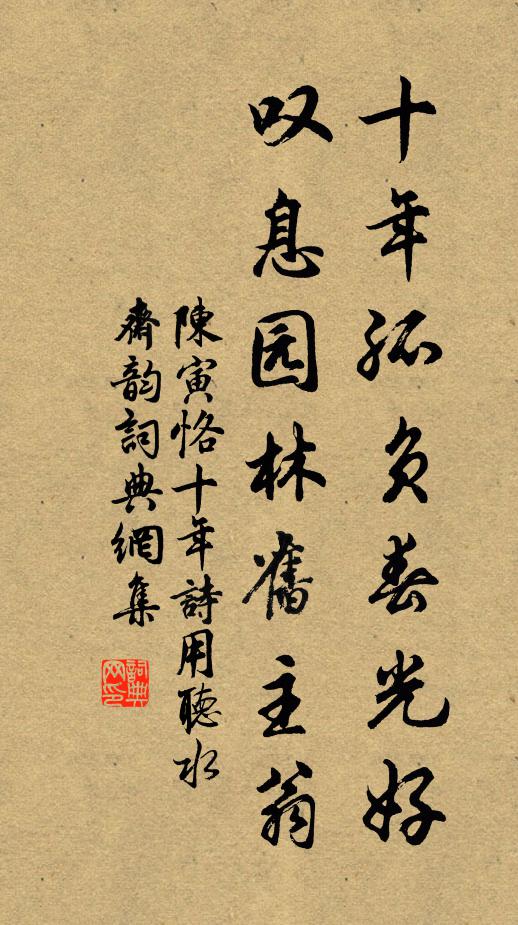 十年孤负春光好
叹息园林舊主翁
陳寅恪十年詩用聽水
齋韵詞典網集
詞典
网印